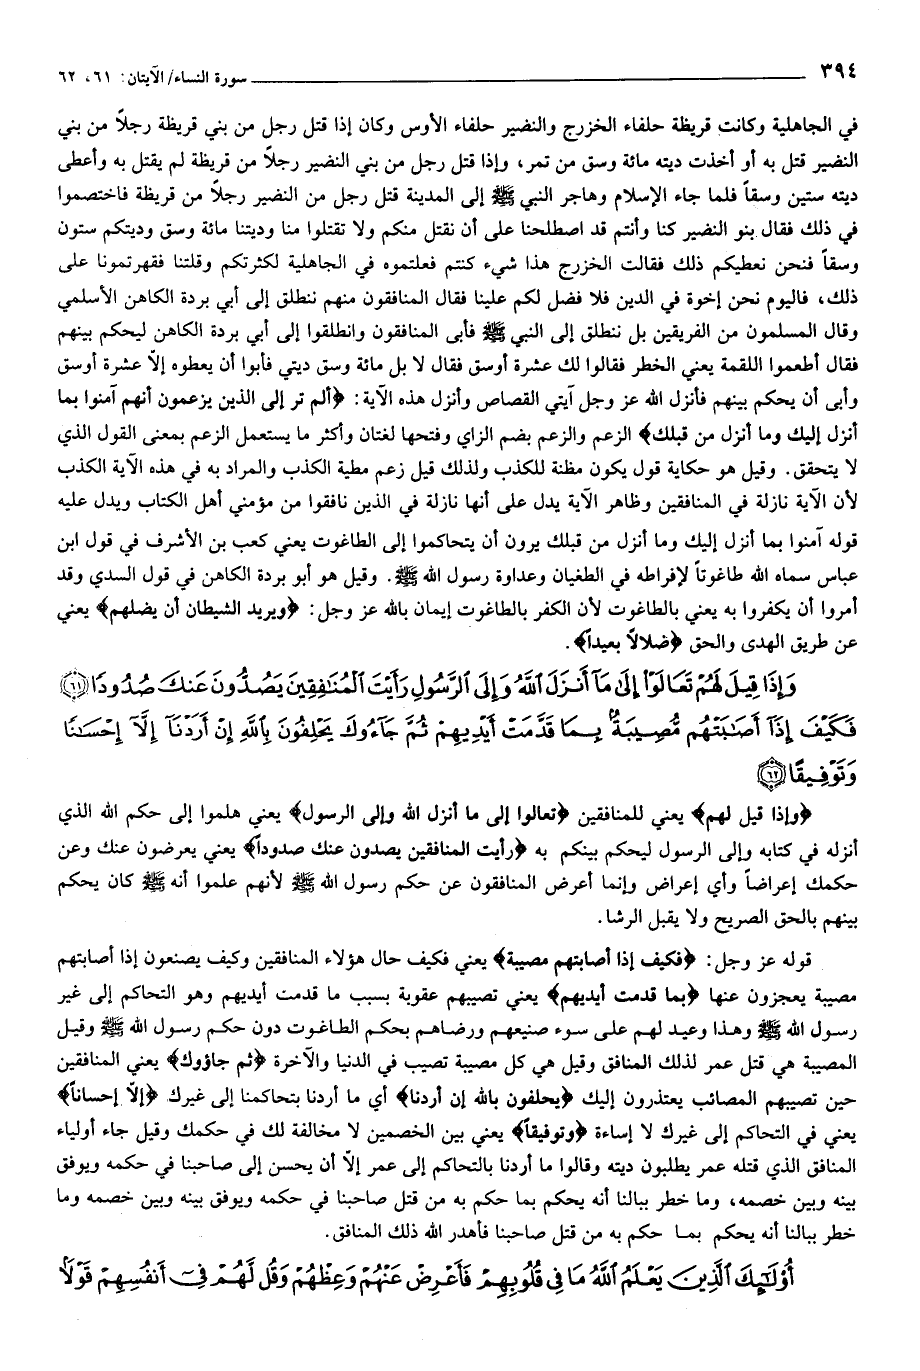 ٣٩٤ سورة النساء/ الآيتان: ٦١، ٦٢
في الجاهلية وكانت قريظة حلفاء الخزرج والنضير حلفاء الأوس وكان إذا قتل رجل من بني قريظة رجلاً من بني
النضير قتل به أو أخذت ديته مائة وسق من تمر، وإذا قتل رجل من بني النضير رجلاً من قريظة لم يقتل به وأعطى
ديته ستين وسقاً فلما جاء الإسلام وهاجر النبي ﷺ إلى المدينة قتل رجل من النضير رجلاً من قريظة فاختصموا
في ذلك فقال بنو النضير كنا وأنتم قد اصطلحنا على أن نقتل منكم ولا تقتلوا منا وديتنا مائة وسق وديتكم ستون
وسقاً فنحن نعطيكم ذلك فقالت الخزرج هذا شيء كنتم فعلتموه في الجاهلية لكثرتكم وقلتنا فقهرتمونا على
ذلك، فاليوم نحن إخوة في الدين فلا فضل لكم علينا فقال المنافقون منهم ننطلق إلى أبي بردة الكاهن الأسلمي
وقال المسلمون من الفريقين بل ننطلق إلى النبي ﷺ فأبى المنافقون وانطلقوا إلى أبي بردة الكاهن ليحكم بينهم
فقال أطعموا اللقمة يعني الخطر فقالوا لك عشرة أوسق فقال لا بل مائة وسق ديتي فأبوا أن يعطوه إلاّ عشرة أوسق
وأبى أن يحكم بينهم فأنزل الله عز وجل آيتي القصاص وأنزل هذه الآية: ﴿ألم تر إلى الذين يزعمون أنهم آمنوا بما
أنزل إليك وما أنزل من قبلك﴾ الزعم والزعم بضم الزاي وفتحها لغتان وأكثر ما يستعمل الزعم بمعنى القول الذي
لا يتحقق. وقيل هو حكاية قول يكون مظنة للكذب ولذلك قيل زعم مطية الكذب والمراد به في هذه الآية الكذب
لأن الآية نازلة في المنافقين وظاهر الآية يدل على أنها نازلة في الذين نافقوا من مؤمني أهل الكتاب ويدل عليه
قوله آمنوا بما أنزل إليك وما أنزل من قبلك يرون أن يتحاكموا إلى الطاغوت يعني كعب بن الأشرف في قول ابن
عباس سماه الله طاغوتاً لإفراطه في الطغيان وعداوة رسول الله ﷺ. وقيل هو أبو بردة الكاهن في قول السدي وقد
أمروا أن يكفروا به يعني بالطاغوت لأن الكفر بالطاغوت إيمان بالله عز وجل: ﴿ويريد الشيطان أن يضلهم﴾ يعني
عن طريق الهدى والحق ﴿ضلالاً بعيداً﴾.
وَإِذَا قِيلَ لَهُمْ تَعَالَوْا إِلَىٰ مَا أَنزَلَ اللَّهُ وَإِلَى الرَّسُولِ رَأَيْتَ الْمُنَافِقِينَ يَصُدُّونَ عَنكَ صُدُودًا ﴿٦١﴾
فَكَيْفَ إِذَا أَصَابَتْهُم مُّصِيبَةٌ بِمَا قَدَّمَتْ أَيْدِيهِمْ ثُمَّ جَاءُوكَ يَحْلِفُونَ بِاللَّهِ إِنْ أَرَدْنَا إِلَّا إِحْسَانًا
وَتَوْفِيقًا ﴿٦٢﴾
﴿وإذا قيل لهم﴾ يعني للمنافقين ﴿تعالوا إلى ما أنزل الله وإلى الرسول﴾ يعني هلموا إلى حكم الله الذي
أنزله في كتابه وإلى الرسول ليحكم بينكم به ﴿رأيت المنافقين يصدون عنك صدوداً﴾ يعني يعرضون عنك وعن
حكمك إعراضاً وأي إعراض وإنما أعرض المنافقون عن حكم رسول الله ﷺ لأنهم علموا أنه ﷺ كان يحكم
بينهم بالحق الصريح ولا يقبل الرشا.
قوله عز وجل: ﴿فكيف إذا أصابتهم مصيبة﴾ يعني فكيف حال هؤلاء المنافقين وكيف يصنعون إذا أصابتهم
مصيبة يعجزون عنها ﴿بما قدمت أيديهم﴾ يعني تصيبهم عقوبة بسبب ما قدمت أيديهم وهو التحاكم إلى غير
رسول الله ﷺ وهذا وعيد لهم على سوء صنيعهم ورضاهم بحكم الطاغوت دون حكم رسول الله ﷺ وقيل
المصيبة هي قتل عمر لذلك المنافق وقيل هي كل مصيبة تصيب في الدنيا والآخرة ﴿ثم جاؤوك﴾ يعني المنافقين
حين تصيبهم المصائب يعتذرون إليك ﴿يحلفون بالله إن أردنا﴾ أي ما أردنا بتحاكمنا إلى غيرك ﴿إلاّ إحساناً﴾
يعني في التحاكم إلى غيرك لا إساءة ﴿وتوفيقاً﴾ يعني بين الخصمين لا مخالفة لك في حكمك وقيل جاء أولياء
المنافق الذي قتله عمر يطلبون ديته وقالوا ما أردنا بالتحاكم إلى عمر إلاّ أن يحسن إلى صاحبنا في حكمه ويوفق
بينه وبين خصمه، وما خطر ببالنا أنه يحكم بما حكم به من قتل صاحبنا في حكمه ويوفق بينه وبين خصمه وما
خطر ببالنا أنه يحكم بما حكم به من قتل صاحبنا فأهدر الله ذلك المنافق.
أُولَٰئِكَ الَّذِينَ يَعْلَمُ اللَّهُ مَا فِي قُلُوبِهِمْ فَأَعْرِضْ عَنْهُمْ وَعِظْهُمْ وَقُل لَّهُمْ فِي أَنفُسِهِمْ قَوْلًا